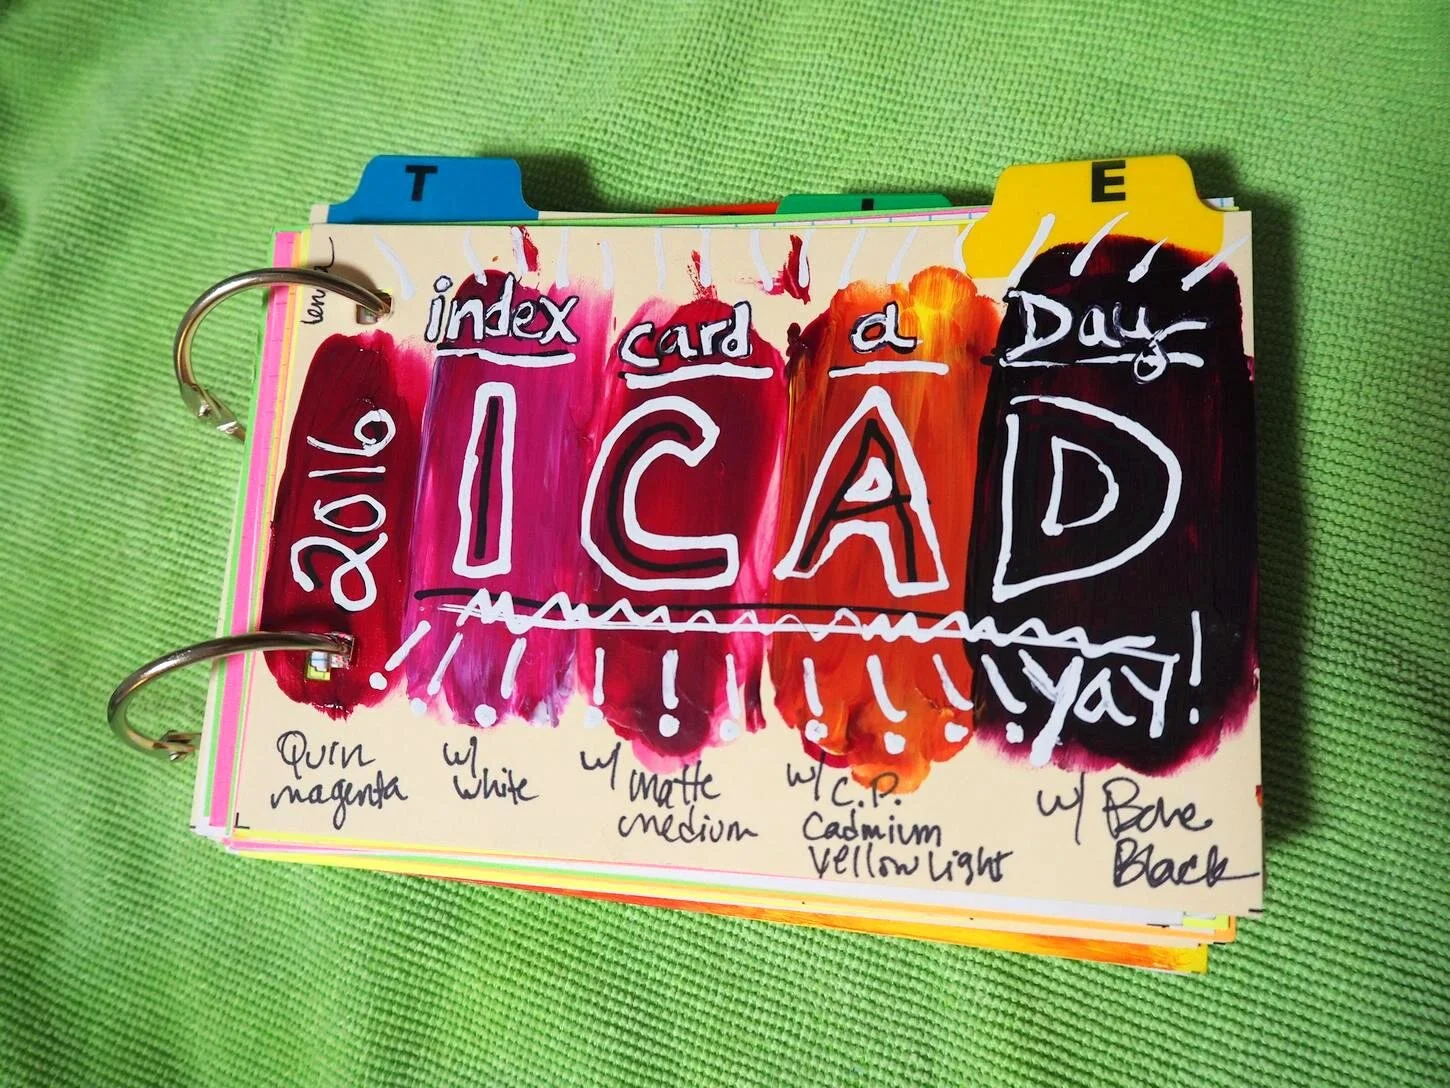 T
E
index card a Day
2016
ICAD
Yay!
Quin
magenta
w/
white
w/ matte
medium
w/ C.P.
Cadmium
Yellow Light
w/ Bone
Black